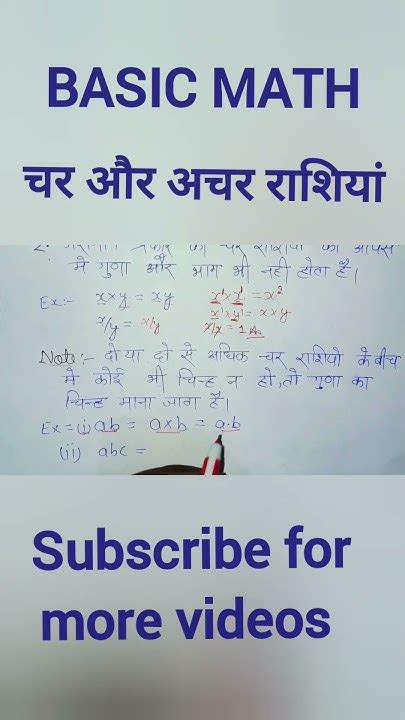 BASIC MATH
चर और अचर राशियां
प्रकार की चर राशियों का आपस
में गुणा और भाग भी नही होता है।
Ex:- x×y = xy x¹×x¹ = x²
x¹×y¹ = x×y
x/y = x/y x/x = 1 Ans
Note:- दो या दो से अधिक चर राशियो के बीच
में कोई भी चिन्ह न हो,तो गुणा का
चिन्ह माना जाता है।
Ex= (i) ab = a×b = a·b
(ii) abc =
Subscribe for
more videos